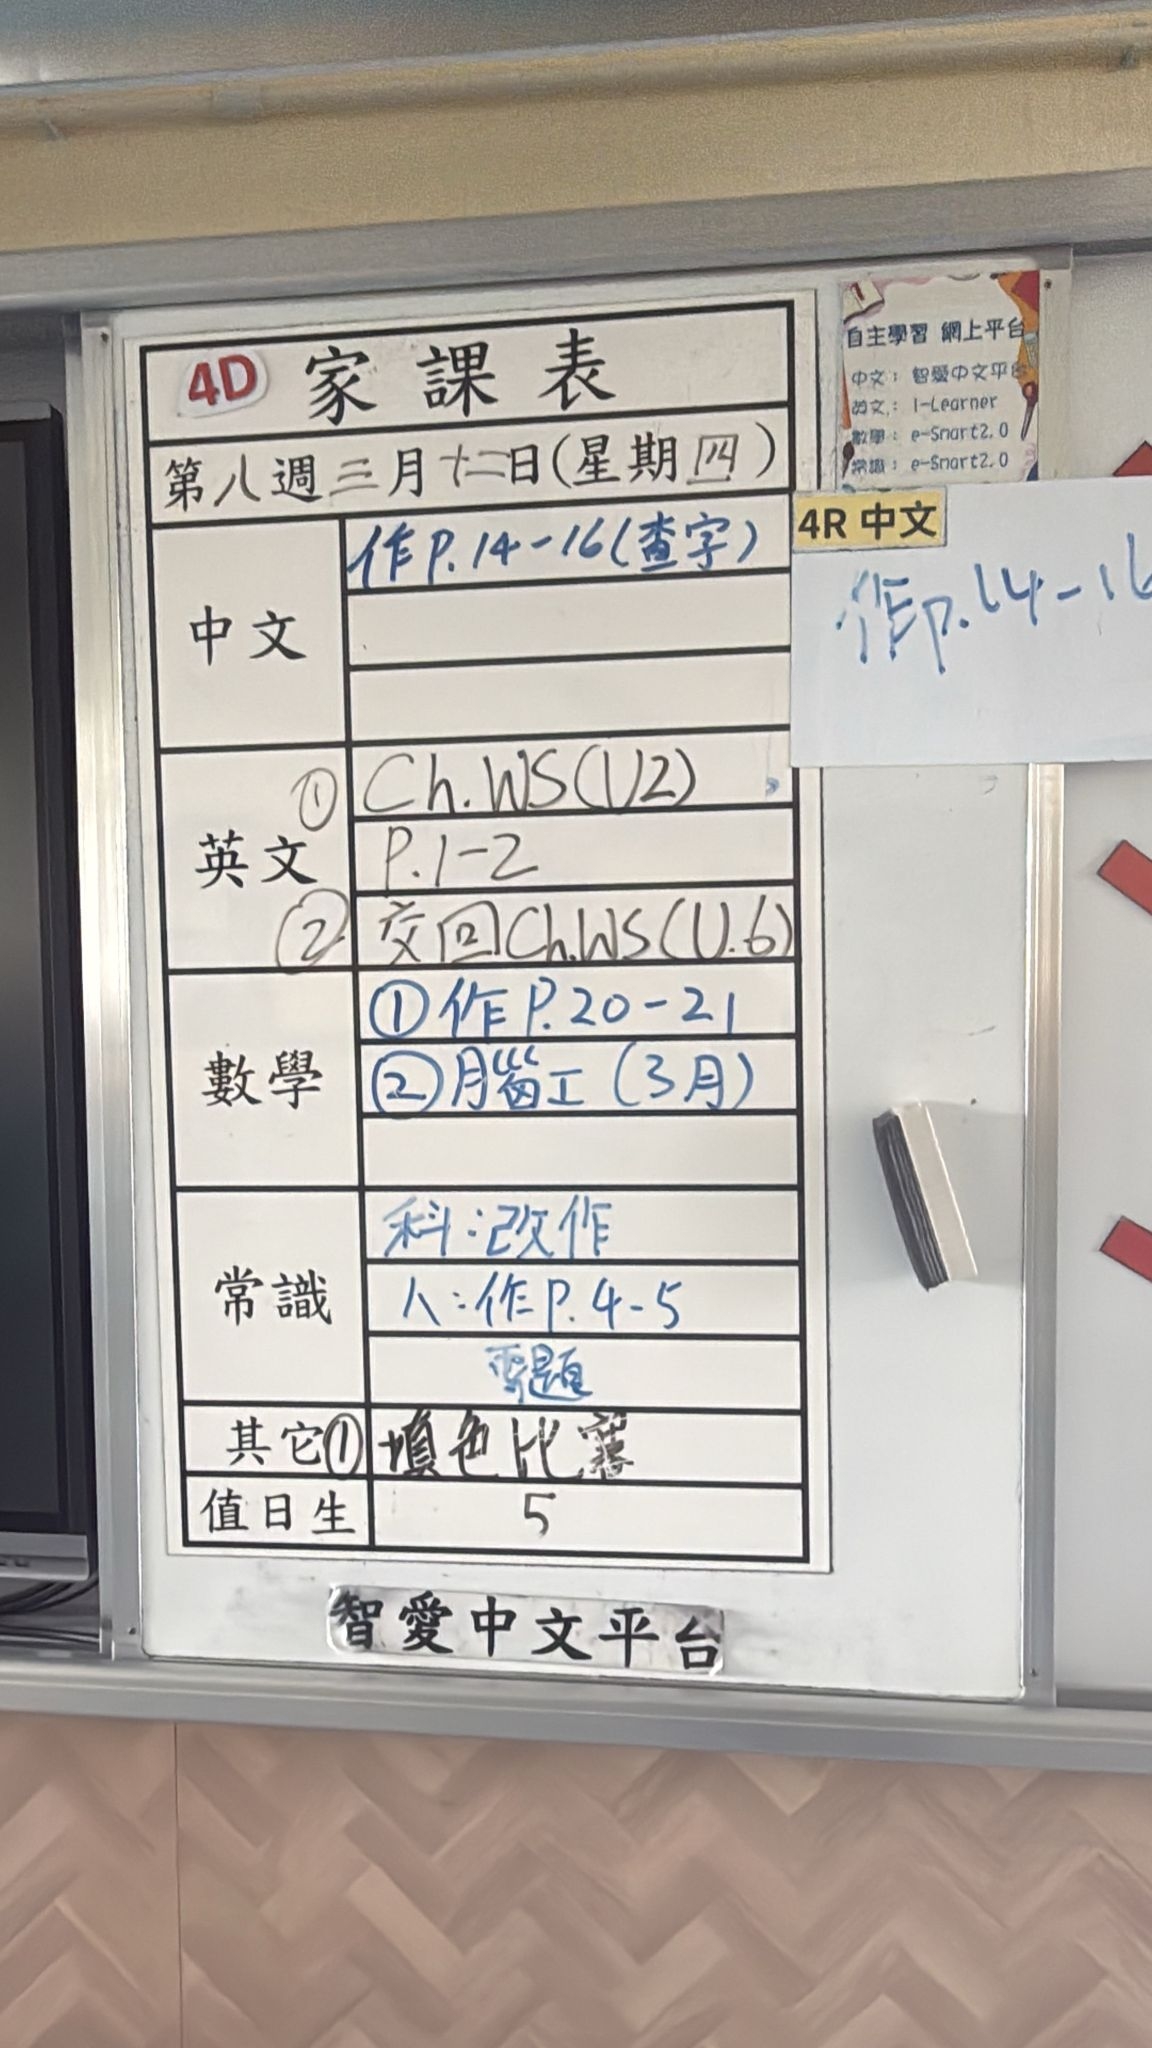 4D 家課表
第八週三月十二日(星期四)
中文
作P.14-16(查字)
英文
① Ch.WS(U2)
P.1-2
② 交回Ch.WS(U.6)
數學
①作P.20-21
②腦工(3月)
常識
科:改作
人:作P.4-5
題
其它① 填色比賽
值日生 5
智愛中文平台
自主學習 網上平台
中文: 智愛中文平台
英文: I-Learner
數學: e-Smart2.0
常識: e-Smart2.0
4R 中文
作p.14-16